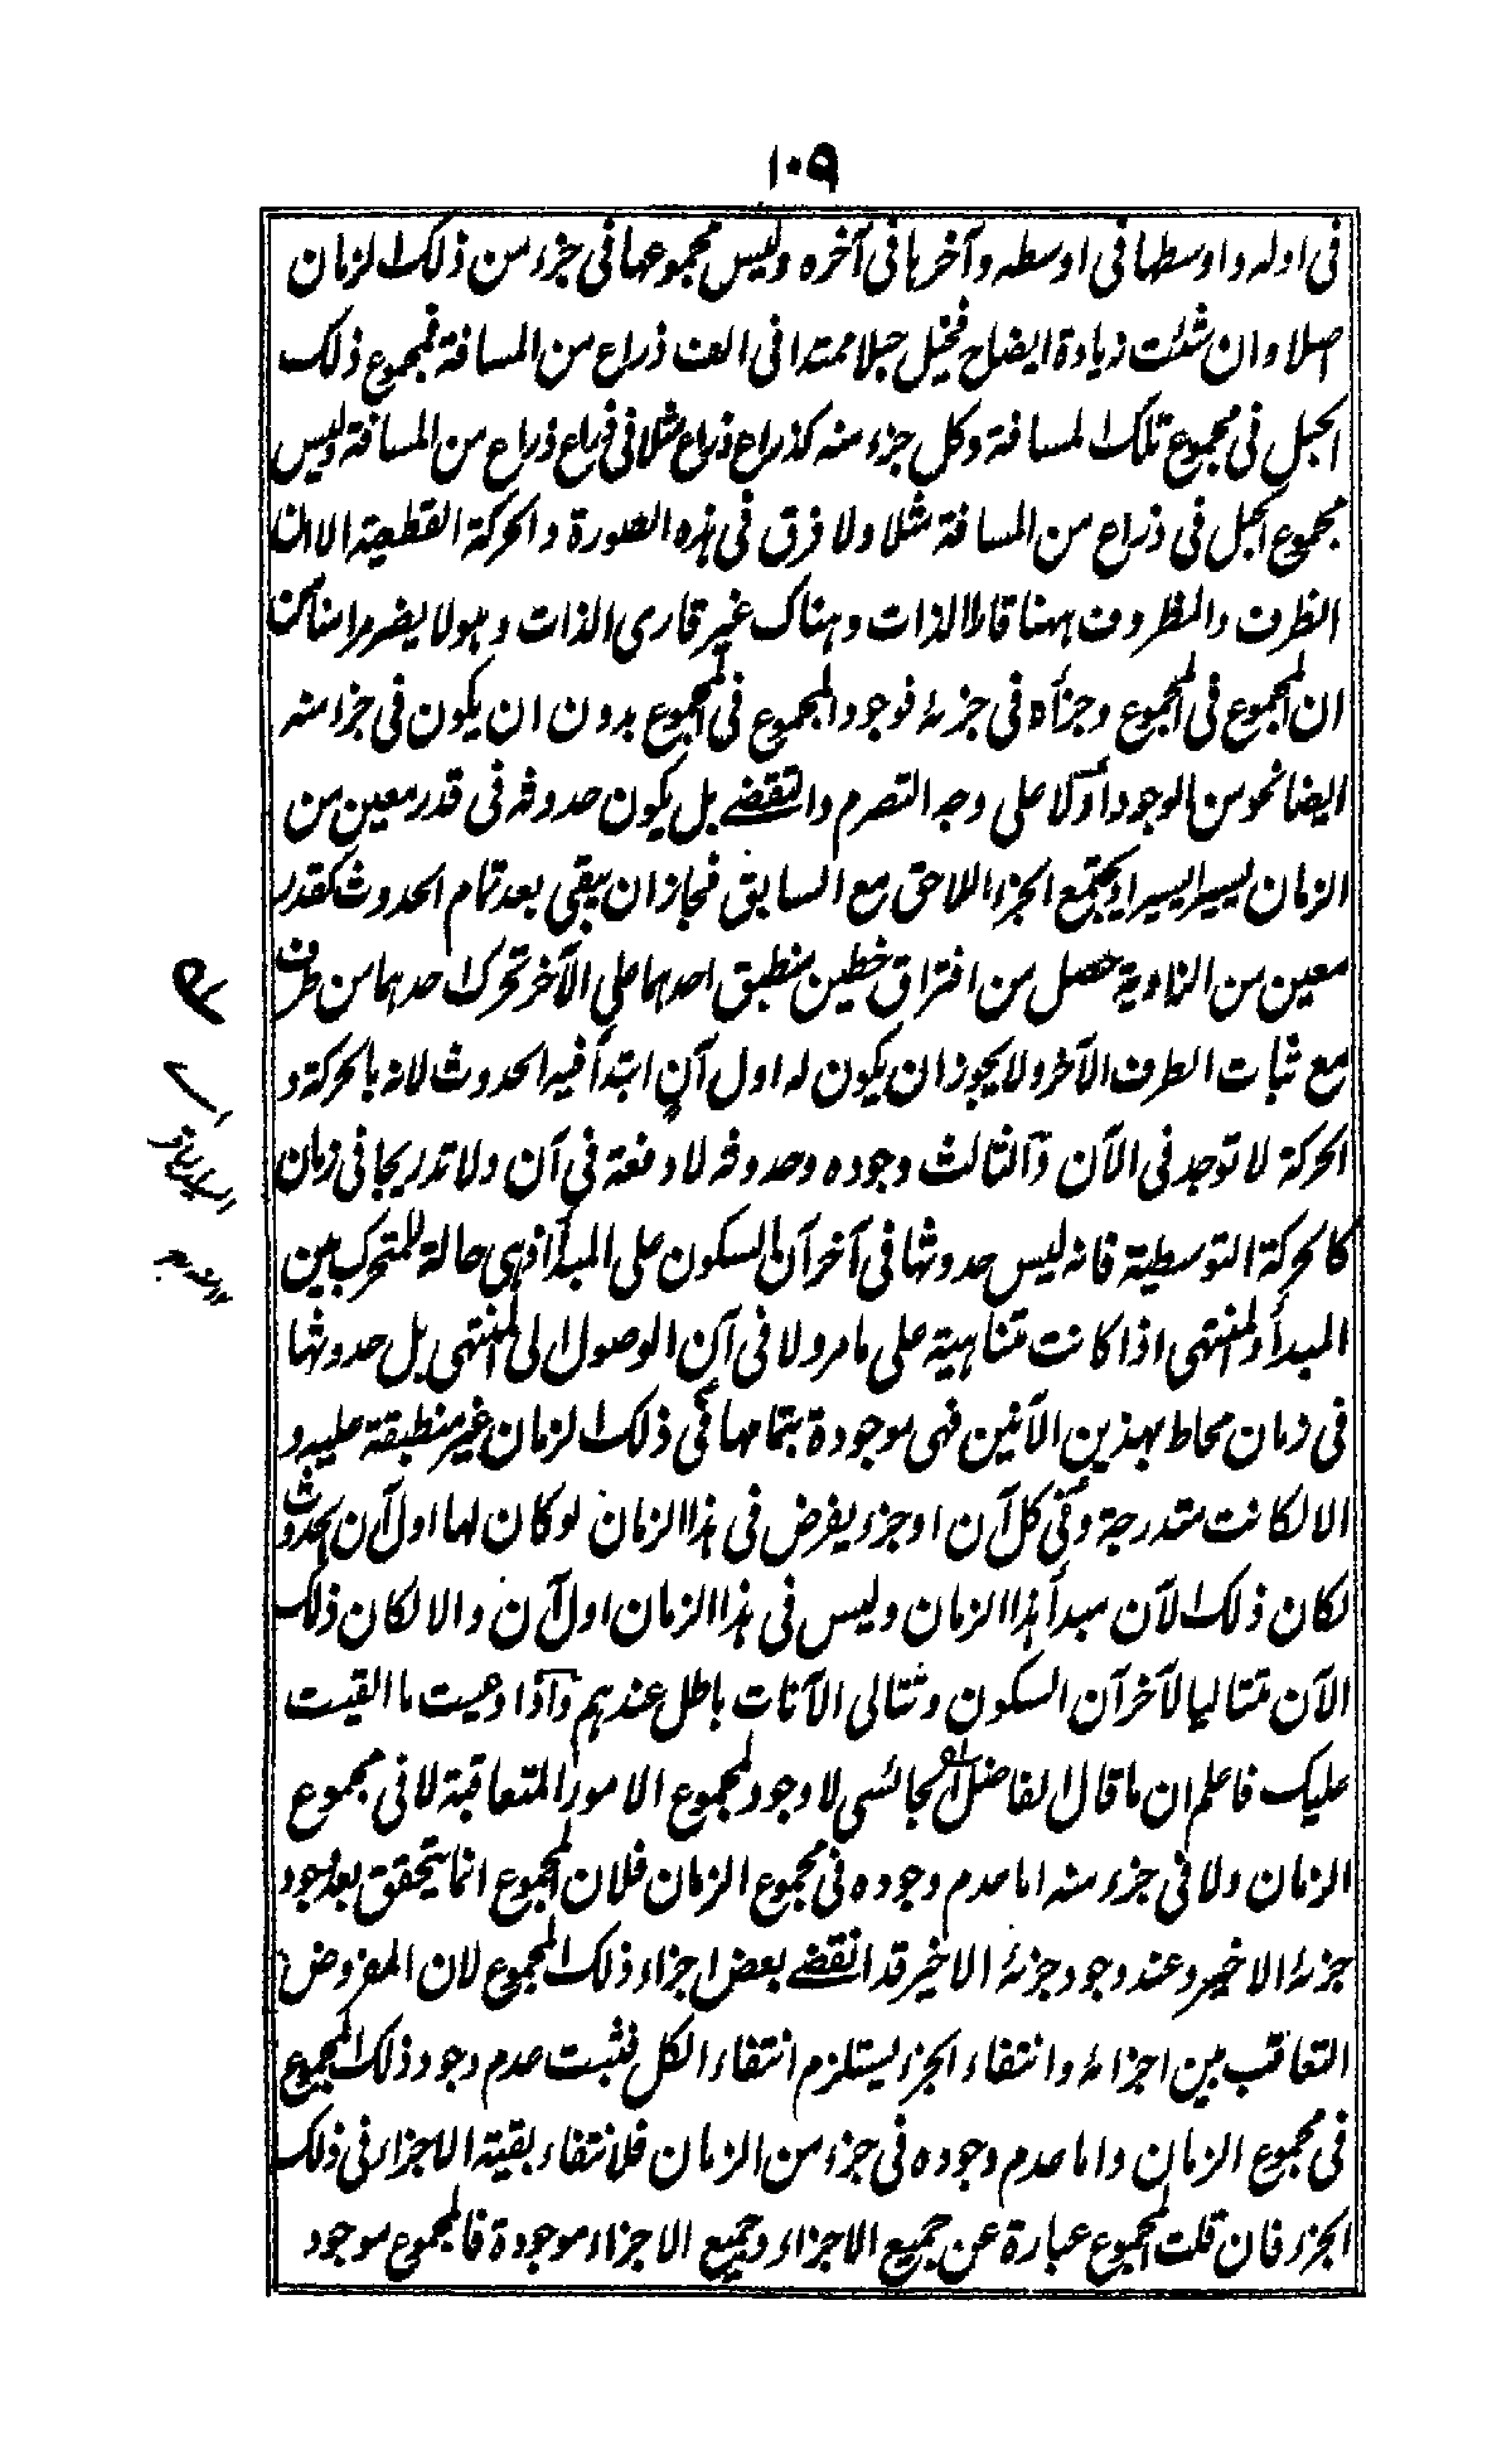 ١٠٩
فى اوله واوسطها فى اوسطه وآخرها فى آخره وليس مجموعها فى جزء من ذلك الزمان
اصلا وان شئت زيادة ايضاح فخيل حبلا ممتدا فى الف ذراع من المسافة فمجموع ذلك
الحبل فى مجموع تلك المسافة وكل جزء منه كذراع ذراع مثلا فى ذراع ذراع من المسافة وليس
مجموع الحبل فى ذراع من المسافة مثلا ولا فرق فى هذه الصورة والحركة القطعية الا ان
الظرف والمظروف ههنا قارا الذات وهناك غير قارى الذات وهو لا يضر مرامنا من
ان المجموع فى المجموع وجزأه فى جزئه فوجود المجموع فى المجموع بدون ان يكون فى جزء منه
ايضا نحو من الوجود أولا على وجه التصرم والتقضى بل يكون حدوثه فى قدر معين من
الزمان يسيرا يسيرا ويجتمع الجزء اللاحق مع السابق فجاز ان يبقى بعد تمام الحدوث كقدر
معين من الزاوية حصل من افتراق خطين منطبق احدهما على الآخر تحرك احدهما من طرف
مع ثبات الطرف الآخر ولا يجوز ان يكون له اول آن ابتدأ فيه الحدوث لانه بالحركة و
الحركة لا توجد فى الآن والثالث وجوده وحدوثه لا دفعة فى آن ولا تدريجا فى زمان
كالحركة التوسطية فانه ليس حدوثها فى آخر آن السكون على المبدأ اذ هى حالة للمتحرك بين
المبدأ والمنتهى اذا كانت متناهية على ما مر ولا فى آن الوصول الى المنتهى بل حدوثها
فى زمان محاط بهذين الآنين فهى موجودة بتمامها فى ذلك الزمان غير منطبقة عليه و
الا لكانت متدرجة وفى كل آن او جزء يفرض فى هذا الزمان لو كان لها اول آن الحدوث
لكان ذلك الآن مبدأ هذا الزمان وليس فى هذا الزمان اول آن والا لكان ذلك
الآن متتاليا لآخر آن السكون وتتالى الآنات باطل عندهم واذا وعيت ما القيت
عليك فاعلم ان ما قال الفاضل لا وجود لمجموع الامور المتعاقبة لا فى مجموع
الزمان ولا فى جزء منه اما عدم وجوده فى مجموع الزمان فلان المجموع انما يتحقق بعد وجود
جزئه الاخير وعند وجود جزئه الاخير قد انقضى بعض اجزاء ذلك المجموع لان المفروض
التعاقب بين اجزائه وانتفاء الجزء يستلزم انتفاء الكل فثبت عدم وجود ذلك المجموع
فى مجموع الزمان واما عدم وجوده فى جزء من الزمان فلانتفاء بقية الاجزاء فى ذلك
الجزء فان قلت المجموع عبارة عن جميع الاجزاء وجميع الاجزاء موجودة فالمجموع موجود